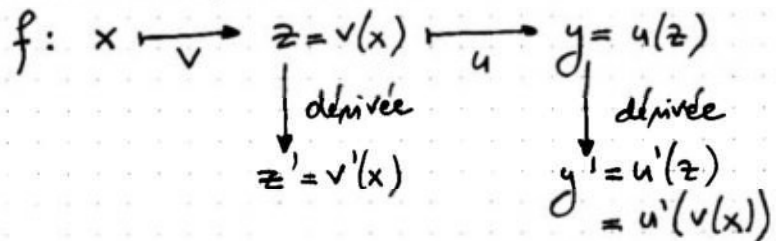 f : x ⟼ z = v(x) ⟼ y = u(z)
v u
dérivée dérivée
z' = v'(x) y' = u'(z)
= u'(v(x))